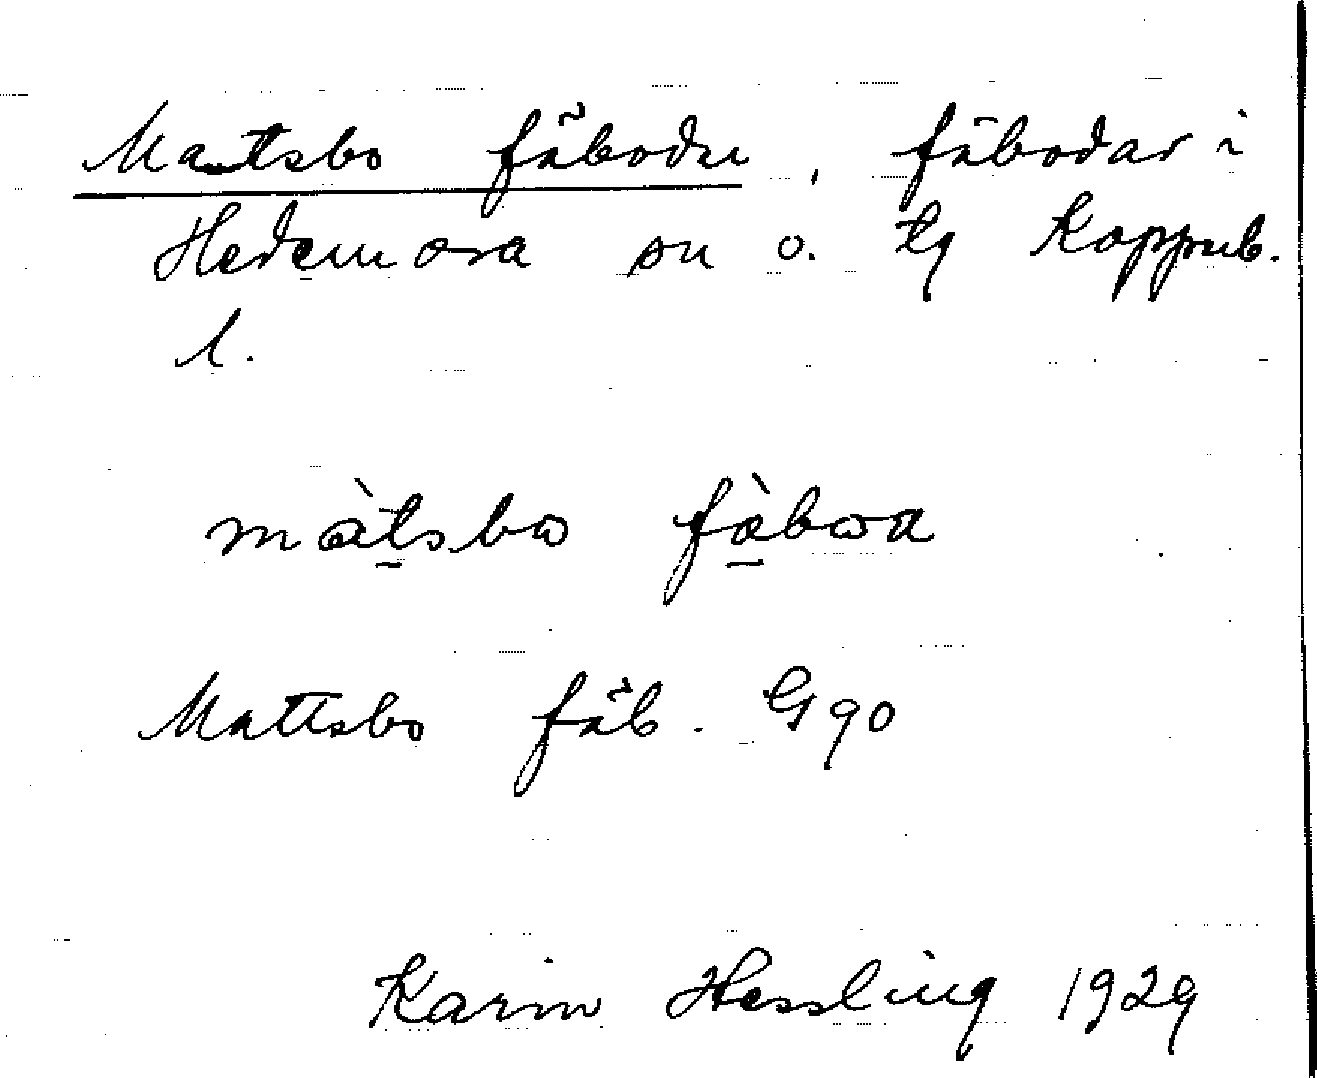 Matsbo fäboda, fäbodar i
Hedemora sn o. tg Koppub.
l.
màtsbω fàbωα
Mattsbo fäb. G 90
Karin Hessling 1929